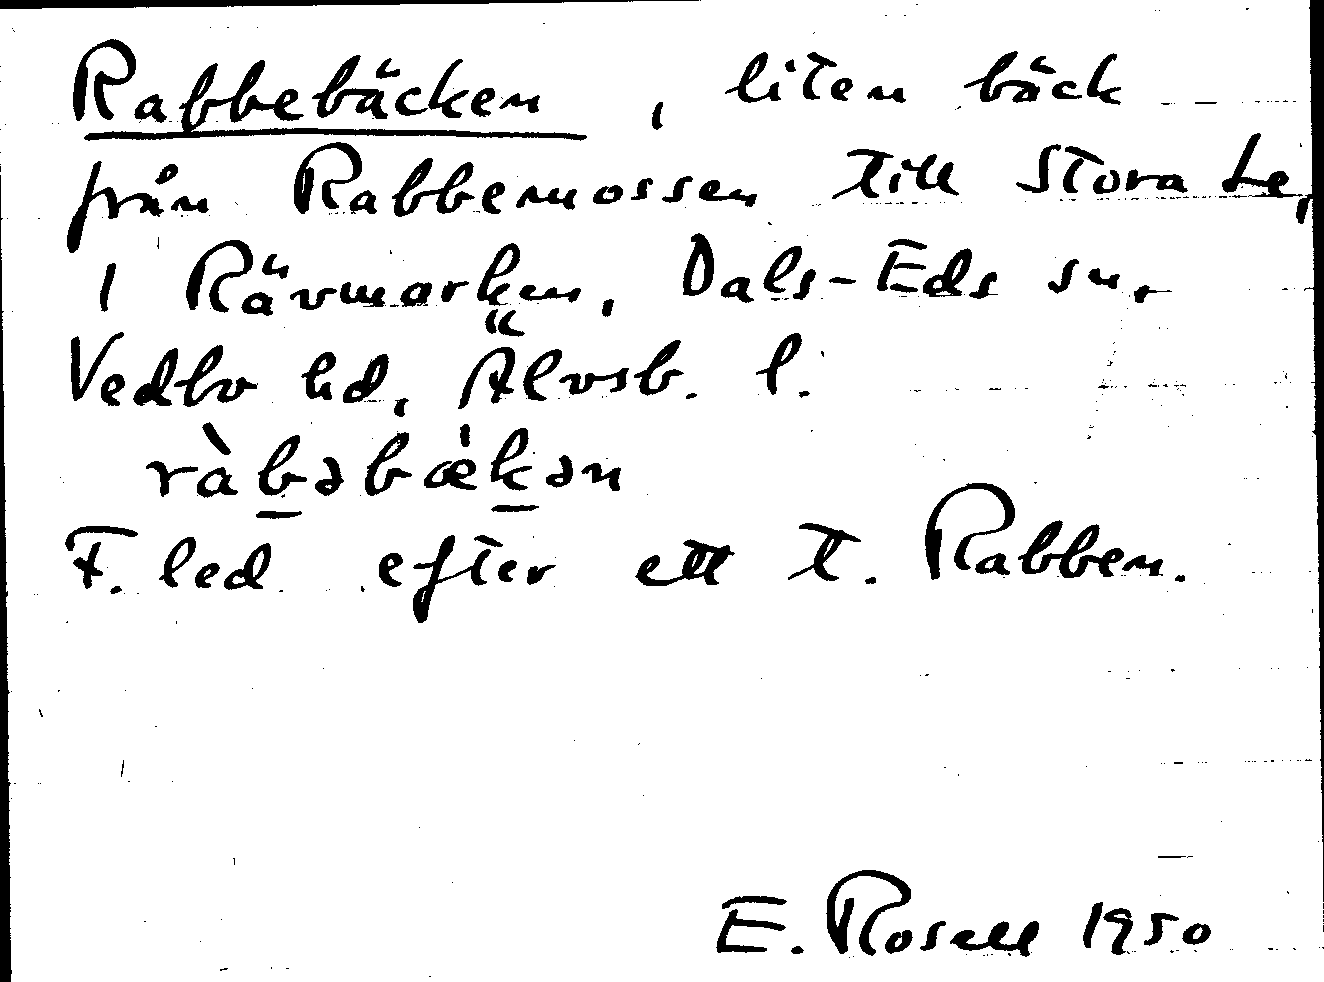 Rabbebäcken, liten bäck
från Rabbemossen till Stora Le,
i Rävmarken, Dals-Eds sn,
Vedbo hd, Älvsb. l.
ràb̲əbæ̀k̲ən
F. led efter ett t. Rabben.
E. Rosell 1950